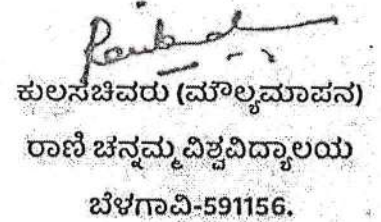 ಕುಲಸಚಿವರು (ಮೌಲ್ಯಮಾಪನ)
ರಾಣಿ ಚನ್ನಮ್ಮ ವಿಶ್ವವಿದ್ಯಾಲಯ
ಬೆಳಗಾವಿ-591156.